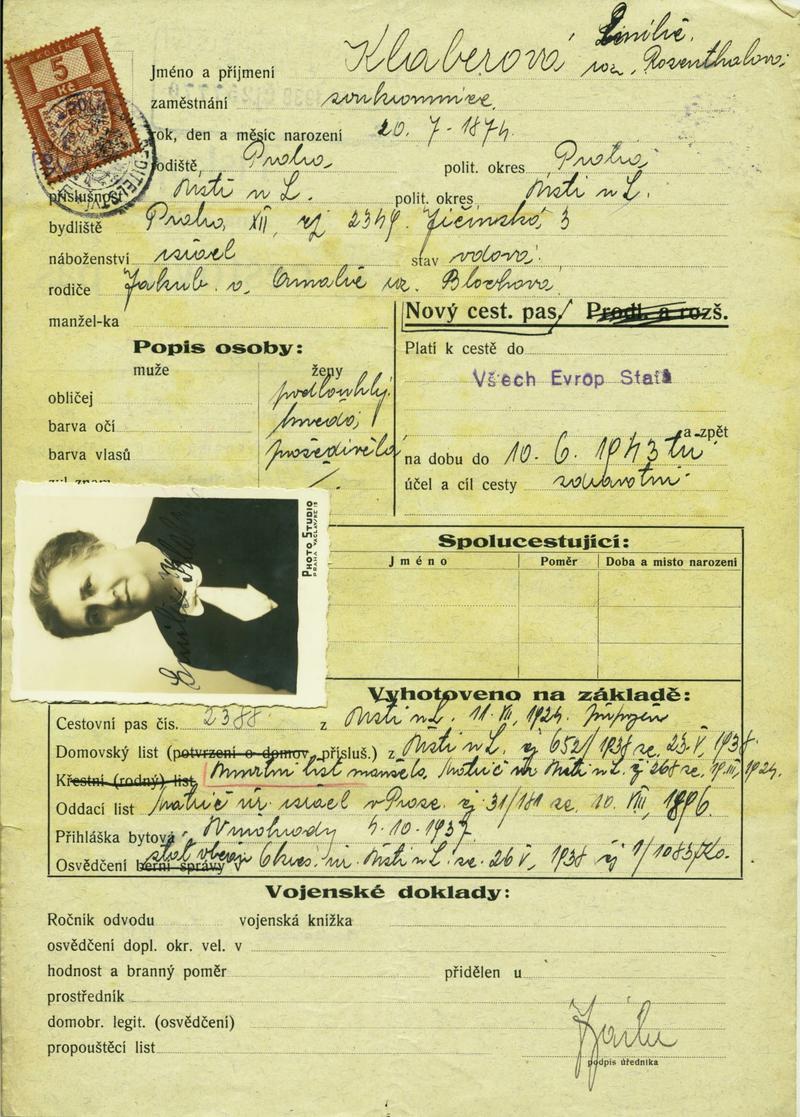 KOLEK
5
Kč
Jméno a příjmení Klaberová Emilie.
roz. Rosenthalová;
zaměstnání soukromnice.
rok, den a měsíc narození 20. 7. 1874.
rodiště, Praha polit. okres Praha
příslušnost Ústí n L. polit. okres Ústí n L.
bydliště Praha XII, čj 2349. Jičínská, 3
náboženství israel stav vdova.
rodiče Jakub. a. Amalie roz. Blochová
manžel-ka
Nový cest. pas/ Prodl. a rozš.
Popis osoby:
muže ženy
Platí k cestě do
Všech Evrop Států
obličej podlouhlý.
barva očí hnědá;
barva vlasů prošedivělá
a zpět
na dobu do 10. 6. 1943 tu
účel a cíl cesty zdravotní.
PHOTO STUDIO
PRAHA VÁCLAVSKÉ
Emilie
Spolucestující:
Jméno Poměr Doba a místo narození
Vyhotoveno na základě:
Cestovní pas čís. 2388 z Ústí n L. 11. VI, 1924.
Domovský list (potvrzení o domov. přísluš.) z Ústí n L. čj 652/1938 ze. 23. V, 1938.
Křestní (rodný) list Úmrtní list manžela. Matrič úř Ústí n L. čj 268 ze. 19. III, 1924.
Oddací list Matrič úř. israel v Praze. čj 31/181 ze. 10. VIII, 1896.
Přihláška bytová Vinohrady 4. 10. 1937
Osvědčení berní správy stát. Okres. úř. Ústí n L. ze. 26 V, 1938 čj 1/1083/Ko.
Vojenské doklady:
Ročník odvodu vojenská knížka
osvědčení dopl. okr. vel. v
hodnost a branný poměr přidělen u
prostředník
domobr. legit. (osvědčení)
propouštěcí list
podpis úředníka